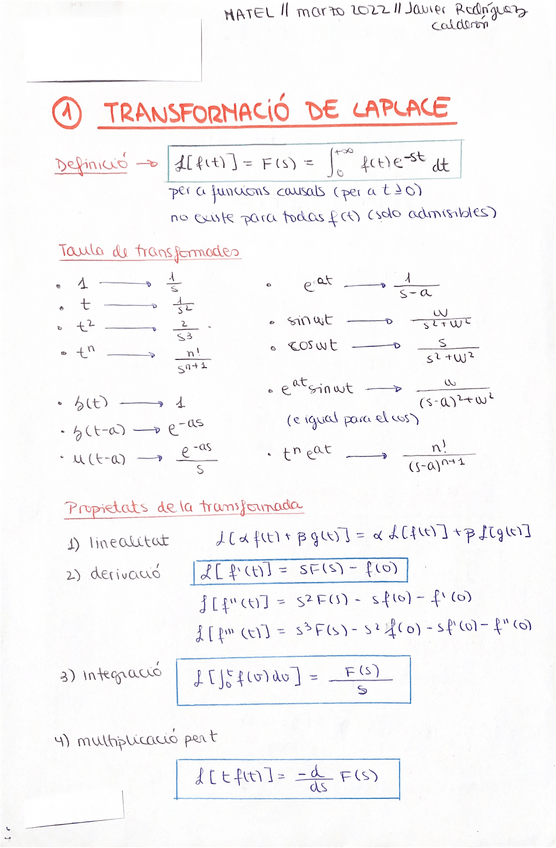 MATEL // marzo 2022 // Javier Rodríguez
Calderón
1 TRANSFORMACIÓ DE LAPLACE
Definició → ℒ[f(t)] = F(s) = ∫₀^{+∞} f(t)e^{-st} dt
per a funcions causals (per a t ≥ 0)
no existe para todas f(t) (solo admisibles)
Taula de transformades
• 1 → 1/s
• t → 1/s²
• t² → 2/s³
• tⁿ → n!/s^{n+1}
• δ(t) → 1
• δ(t-a) → e^{-as}
• u(t-a) → e^{-as}/s
• e^{at} → 1/(s-a)
• sin ωt → ω/(s²+ω²)
• cos ωt → s/(s²+ω²)
• e^{at} sin ωt → ω/((s-a)²+ω²)
(e igual para el cos)
• tⁿ e^{at} → n!/(s-a)^{n+1}
Propietats de la transformada
1) linealitat ℒ[αf(t) + βg(t)] = αℒ[f(t)] + βℒ[g(t)]
2) derivació ℒ[f'(t)] = sF(s) - f(0)
ℒ[f''(t)] = s²F(s) - sf(0) - f'(0)
ℒ[f'''(t)] = s³F(s) - s²f(0) - sf'(0) - f''(0)
3) Integració ℒ[∫₀ᵗ f(u)du] = F(s)/s
4) multiplicació per t
ℒ[tf(t)] = -d/ds F(s)